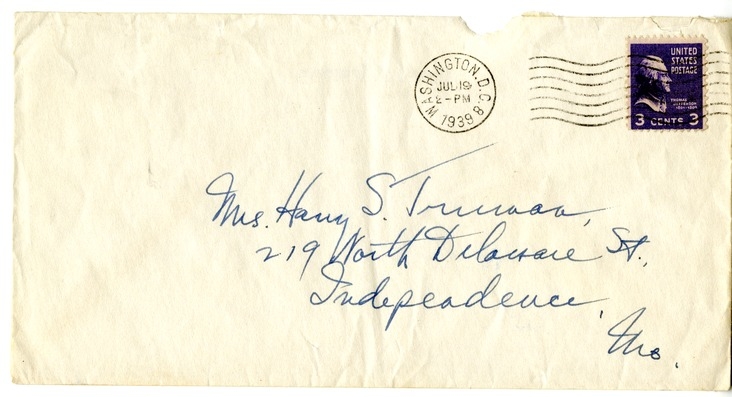 WASHINGTON, D.C. 8
JUL 19
2 - PM
1939
UNITED
STATES
POSTAGE
THOMAS
JEFFERSON
1801-1809
3 CENTS 3
Mrs. Harry S. Truman,
219 North Delaware St.,
Independence,
Mo.